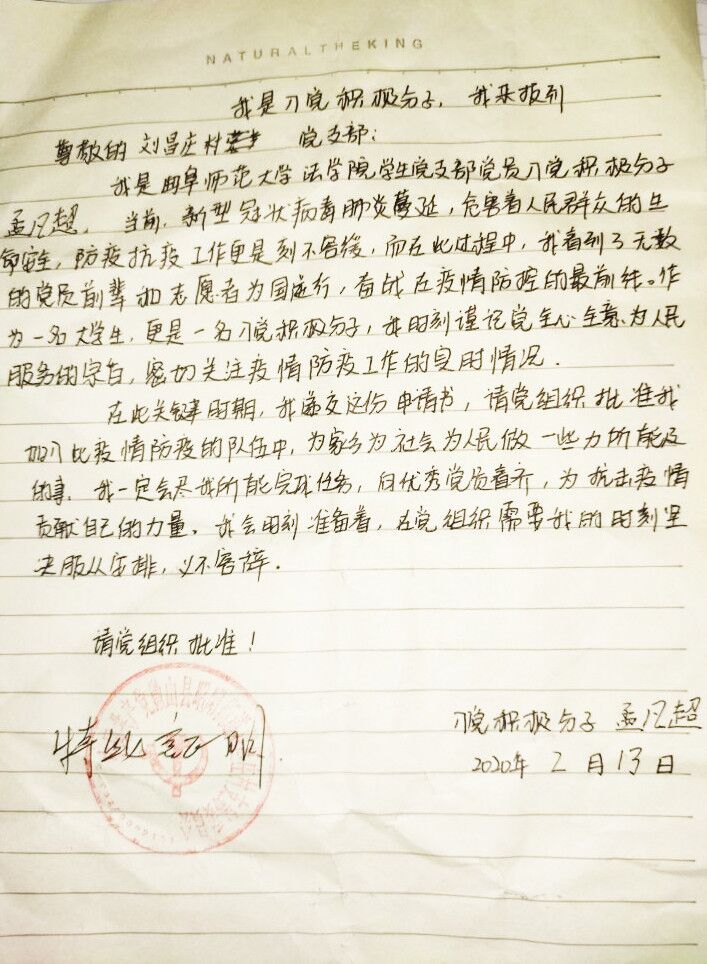 NATURALTHEKING
我是入党积极分子，我来报到
尊敬的 刘昌庄村 党支部：
我是曲阜师范大学法学院学生党支部党员入党积极分子
孟凡超。当前，新型冠状病毒肺炎蔓延，危害着人民群众的生
命安全，防疫抗疫工作更是刻不容缓，而在此过程中，我看到了无数
的党员前辈和志愿者为国逆行，奋战在疫情防控的最前线。作
为一名大学生，更是一名入党积极分子，我时刻谨记党全心全意为人民
服务的宗旨，密切关注疫情防疫工作的实时情况。
在此关键时期，我递交这份申请书，请党组织批准我
加入此疫情防疫的队伍中，为家乡为社会为人民做一些力所能及
的事。我一定会尽我所能完成任务，向优秀党员看齐，为抗击疫情
贡献自己的力量。我会时刻准备着，在党组织需要我的时刻坚
决服从安排，义不容辞。
请党组织批准！
特此证明
入党积极分子 孟凡超
2020年 2月13日